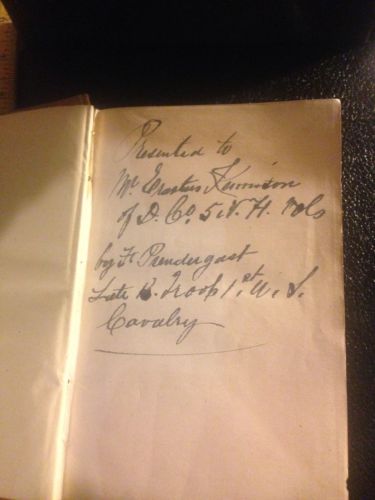 Presented to
Mr. Erastus Kennison
of D. Co. 5 N. H. Vols
by F. Prendergast
Late B. Troop 1st U. S.
Cavalry